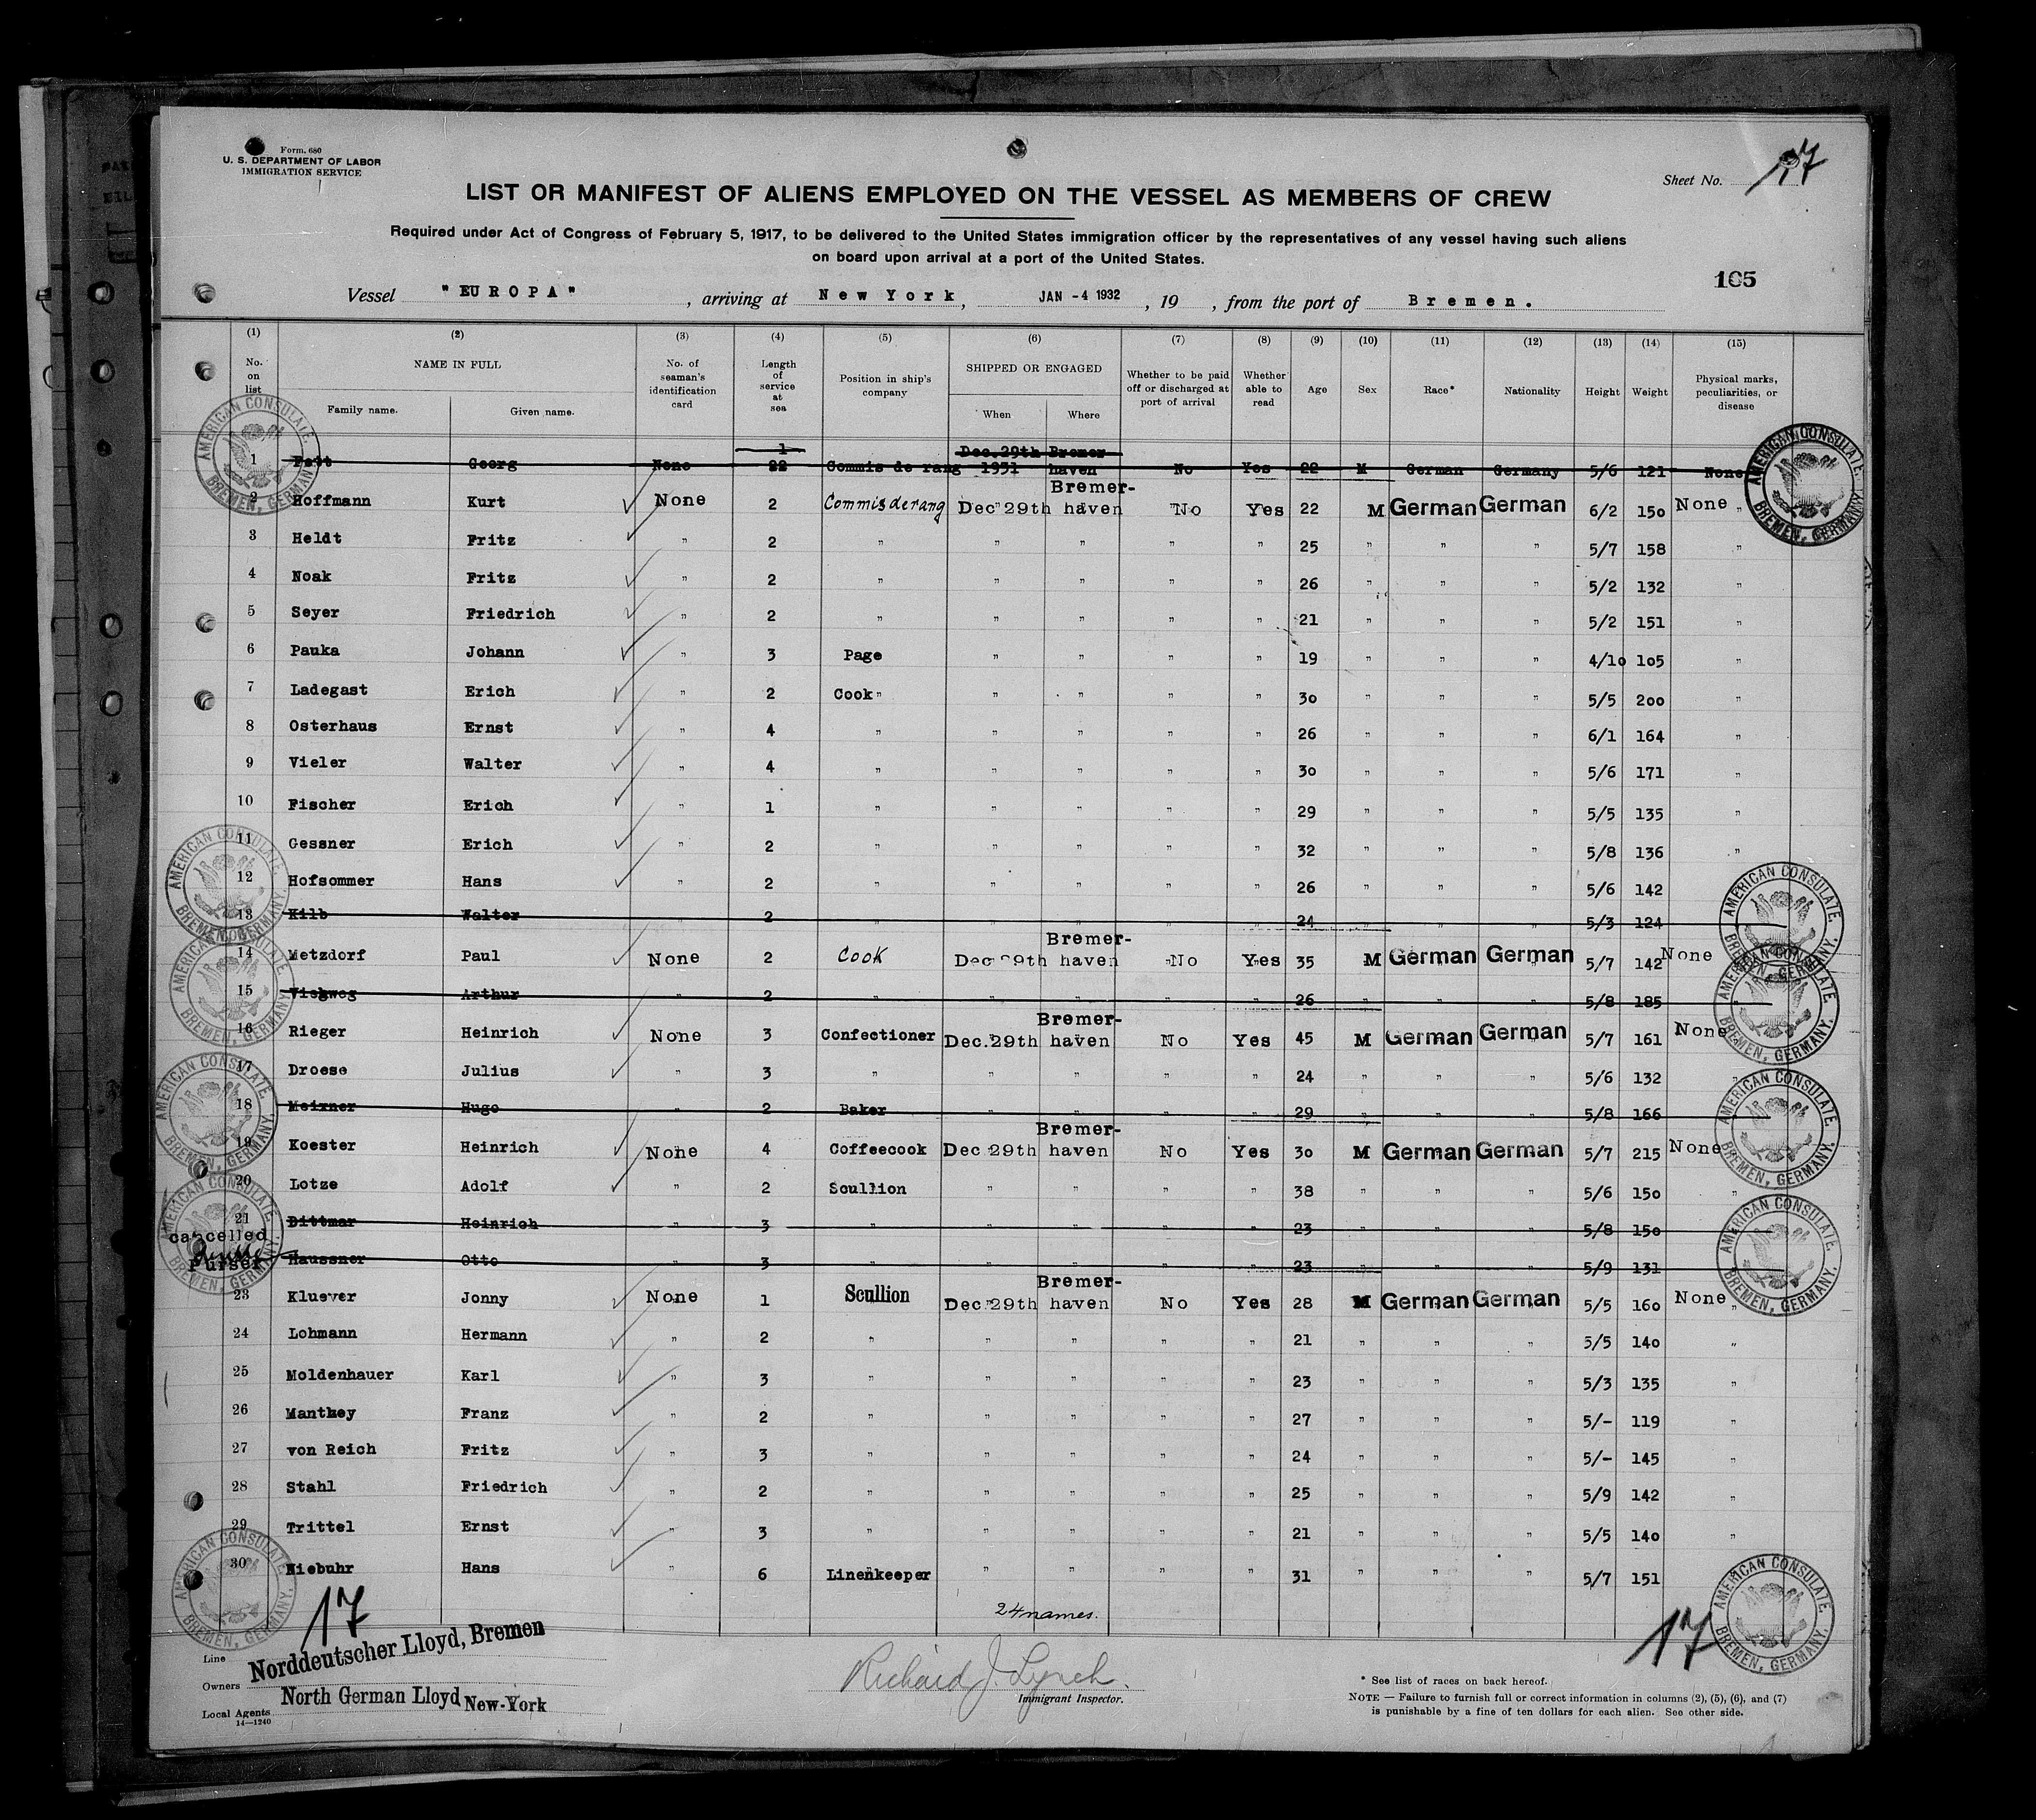 Form. 680
U. S. DEPARTMENT OF LABOR
IMMIGRATION SERVICE
Sheet No. 17
LIST OR MANIFEST OF ALIENS EMPLOYED ON THE VESSEL AS MEMBERS OF CREW
Required under Act of Congress of February 5, 1917, to be delivered to the United States immigration officer by the representatives of any vessel having such aliens
on board upon arrival at a port of the United States.
165
Vessel "EUROPA", arriving at New York, JAN -4 1932, 19 , from the port of Bremen.
(1) (2) (3) (4) (5) (6) (7) (8) (9) (10) (11) (12) (13) (14) (15)
No. on list NAME IN FULL Family name. Given name. No. of seaman's identification card Length of service at sea Position in ship's company SHIPPED OR ENGAGED When Where Whether to be paid off or discharged at port of arrival Whether able to read Age Sex Race* Nationality Height Weight Physical marks, peculiarities, or disease
1 Georg None 1 22 Commis de rang Dec.29th 1931 Bremer haven No Yes 22 M German Germany 5/6 121 None
2 Hoffmann Kurt None 2 Commis de rang Dec 29th Bremer- haven No Yes 22 M German German 6/2 150 None
3 Heldt Fritz " 2 " " " " " 25 " " " 5/7 158 "
4 Noak Fritz " 2 " " " " " 26 " " " 5/2 132 "
5 Seyer Friedrich " 2 " " " " " 21 " " " 5/2 151 "
6 Pauka Johann " 3 Page " " " " 19 " " " 4/10 105 "
7 Ladegast Erich " 2 Cook " " " " 30 " " " 5/5 200 "
8 Osterhaus Ernst " 4 " " " " " 26 " " " 6/1 164 "
9 Vieler Walter " 4 " " " " " 30 " " " 5/6 171 "
10 Fischer Erich " 1 " " " " " 29 " " " 5/5 135 "
11 Gessner Erich " 2 " " " " " 32 " " " 5/8 136 "
12 Hofsommer Hans " 2 " " " " " 26 " " " 5/6 142 "
13 Kilb Walter " 2 " " " " " 24 " " " 5/3 124
14 Metzdorf Paul None 2 Cook Dec 29th Bremer- haven No Yes 35 M German German 5/7 142 None
15 Arthur " 2 " " " " " 26 " " " 5/8 185 "
16 Rieger Heinrich None 3 Confectioner Dec.29th Bremer- haven No Yes 45 M German German 5/7 161 None
17 Droese Julius " 3 " " " " " 24 " " " 5/6 132 "
18 Meixner Hugo " 2 Baker " " " " 29 " " " 5/8 166
19 Koester Heinrich None 4 Coffeecook Dec 29th Bremer- haven No Yes 30 M German German 5/7 215 None
20 Lotze Adolf " 2 Scullion " " " " 38 " " " 5/6 150 "
21 Dittmar Heinrich " 3 " " " " " 23 " " " 5/8 150
cancelled
Purser
Haussner Otto " 3 " " " " " 23 " " " 5/9 131
23 Kluever Jonny None 1 Scullion Dec 29th Bremer- haven No Yes 28 M German German 5/5 160 None
24 Lohmann Hermann " 2 " " " " " 21 " " " 5/5 140 "
25 Moldenhauer Karl " 3 " " " " " 23 " " " 5/3 135 "
26 Manthey Franz " 2 " " " " " 27 " " " 5/- 119 "
27 von Reich Fritz " 3 " " " " " 24 " " " 5/- 145 "
28 Stahl Friedrich " 2 " " " " " 25 " " " 5/9 142 "
29 Trittel Ernst " 3 " " " " " 21 " " " 5/5 140 "
30 Niebuhr Hans " 6 Linenkeeper " " " " 31 " " " 5/7 151
24 names.
17
17
AMERICAN CONSULATE. BREMEN, GERMANY.
Line Norddeutscher Lloyd, Bremen
Owners
Local Agents North German Lloyd New-York
14—1240
Richard J. Lynch.
Immigrant Inspector.
* See list of races on back hereof.
NOTE — Failure to furnish full or correct information in columns (2), (5), (6), and (7)
is punishable by a fine of ten dollars for each alien. See other side.